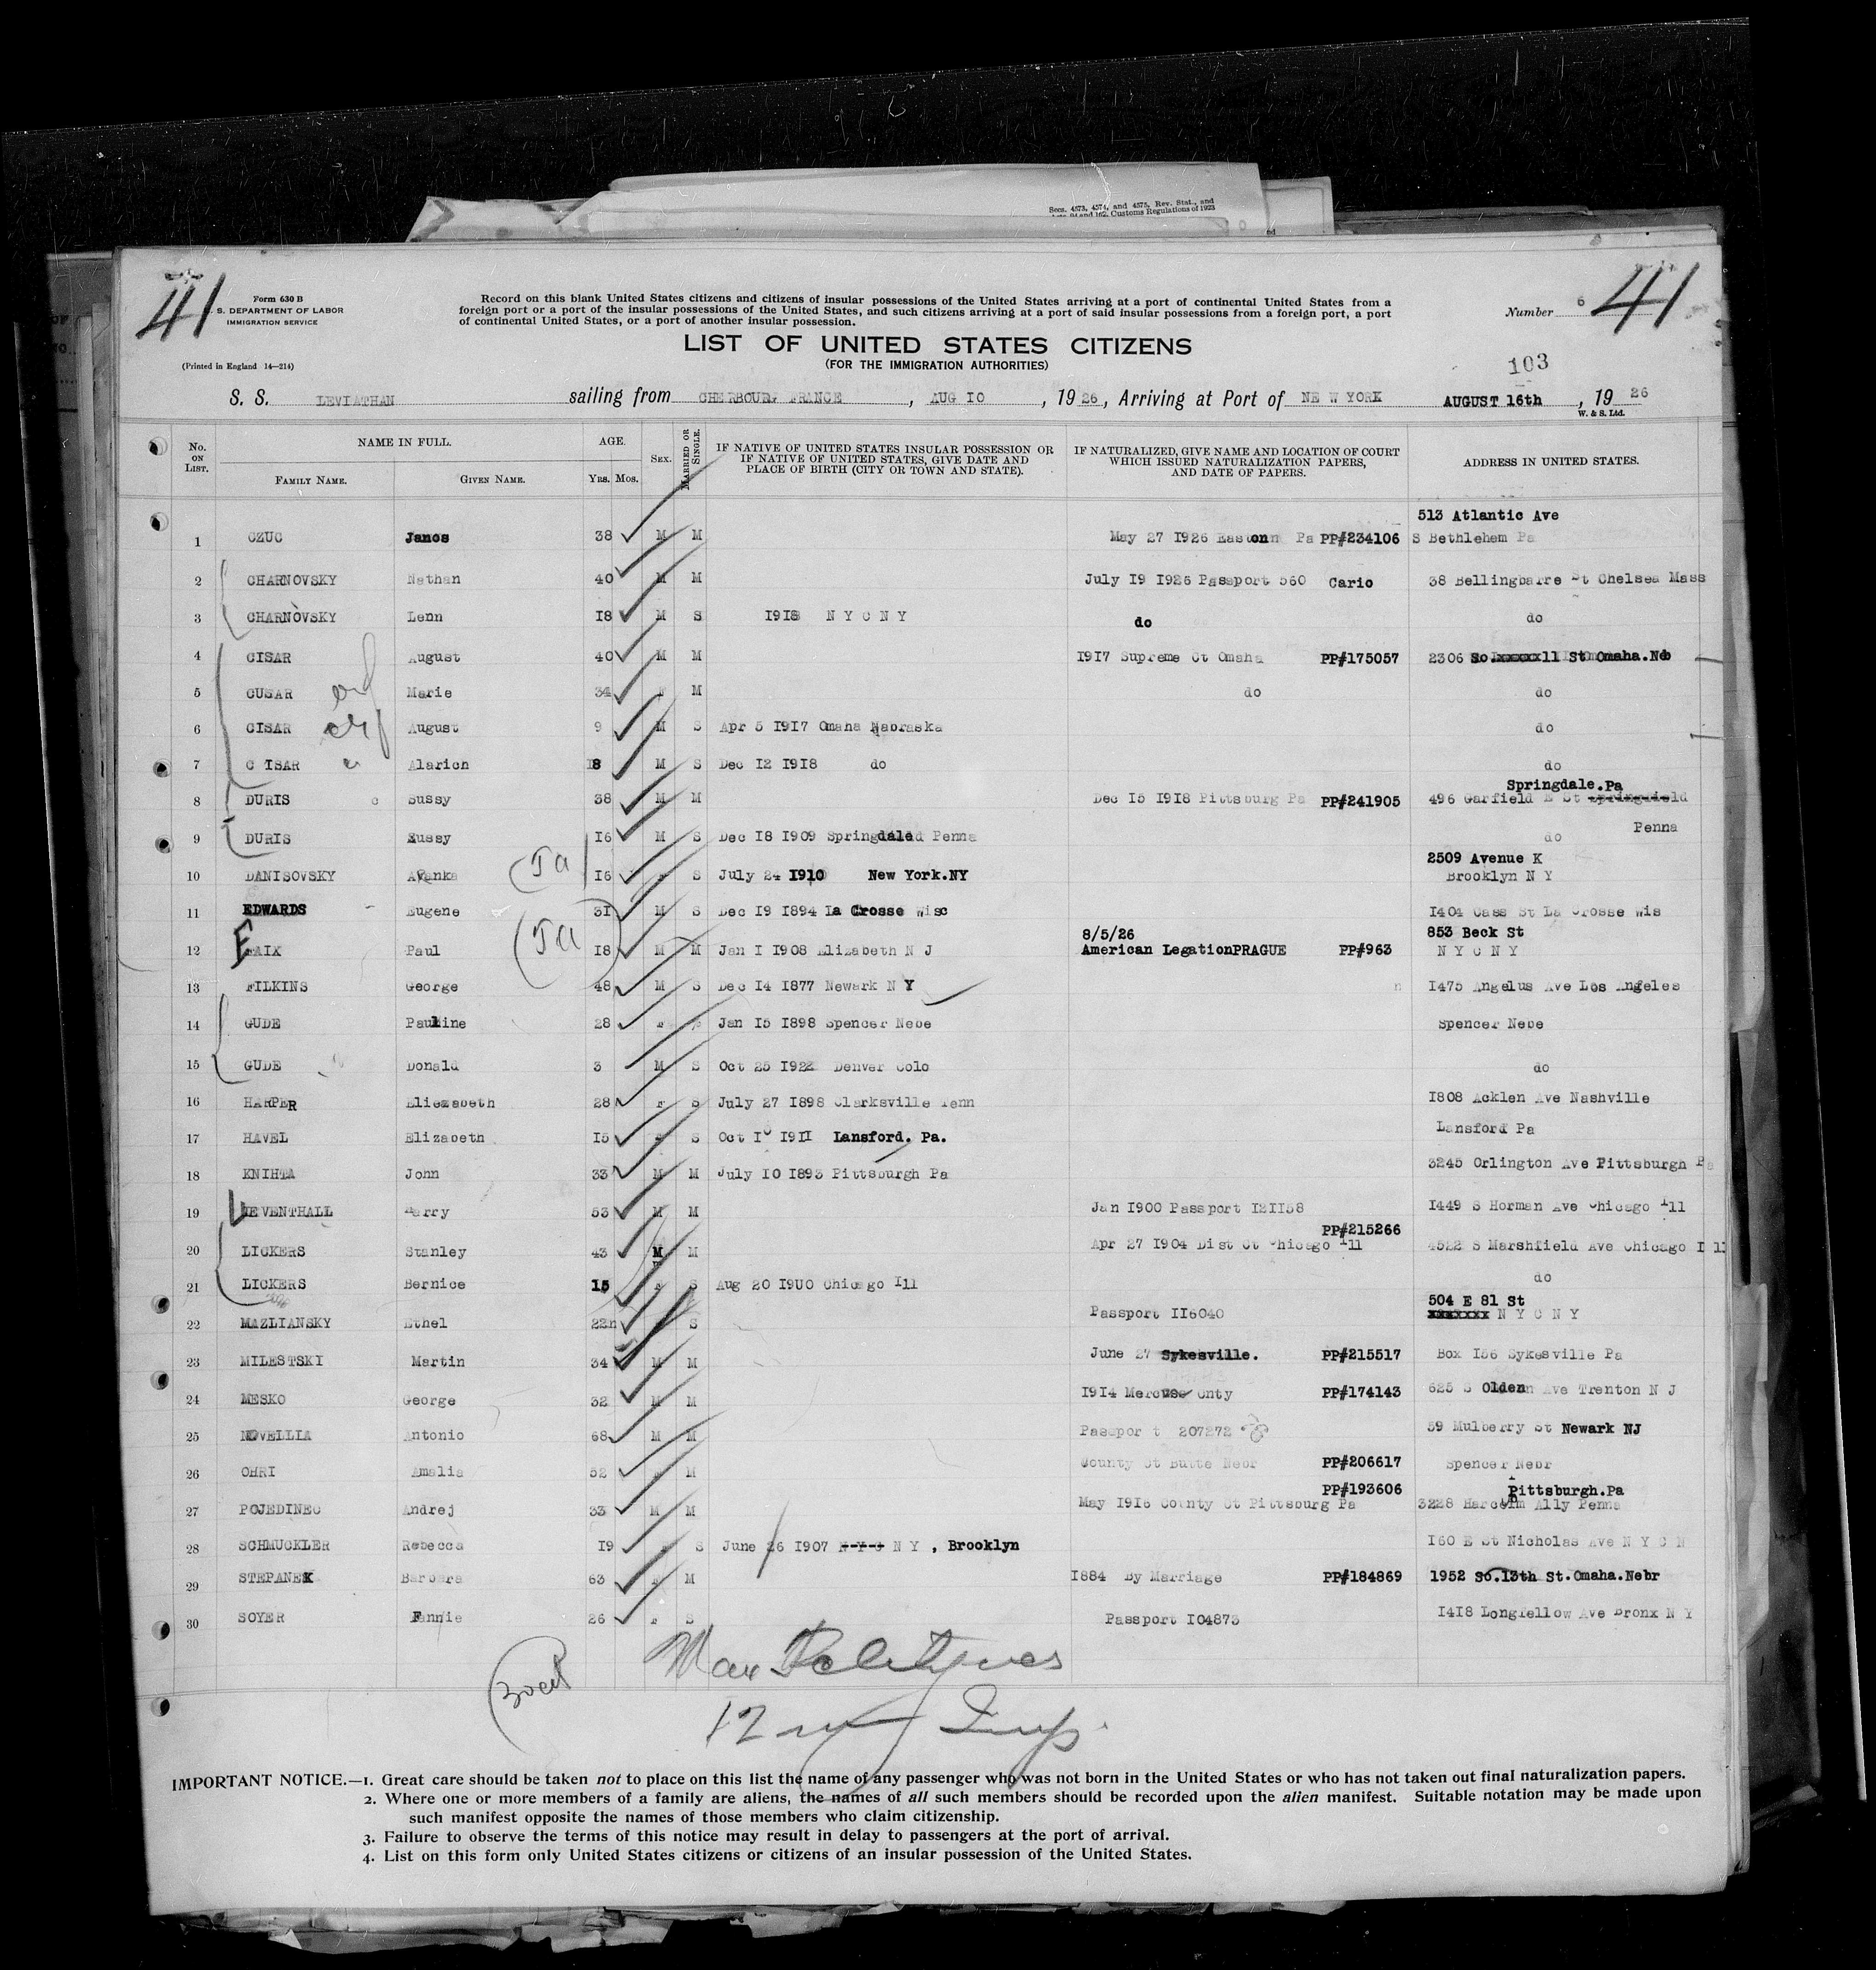 Secs. 4573, 4574, and 4575, Rev. Stat., and
Customs Regulations of 1923
41
Form 630 B
S. DEPARTMENT OF LABOR
IMMIGRATION SERVICE
(Printed in England 14—214)
Record on this blank United States citizens and citizens of insular possessions of the United States arriving at a port of continental United States from a
foreign port or a port of the insular possessions of the United States, and such citizens arriving at a port of said insular possessions from a foreign port, a port
of continental United States, or a port of another insular possession.
Number 6
41
LIST OF UNITED STATES CITIZENS
(FOR THE IMMIGRATION AUTHORITIES)
103
S. S. LEVIATHAN sailing from CHERBOURG FRANCE, AUG 10, 1926, Arriving at Port of NEW YORK AUGUST 16th, 1926
W. & S. Ltd.
No. ON LIST. NAME IN FULL. FAMILY NAME. GIVEN NAME. AGE. YRS. MOS. SEX. MARRIED OR SINGLE. IF NATIVE OF UNITED STATES INSULAR POSSESSION OR IF NATIVE OF UNITED STATES, GIVE DATE AND PLACE OF BIRTH (CITY OR TOWN AND STATE). IF NATURALIZED, GIVE NAME AND LOCATION OF COURT WHICH ISSUED NATURALIZATION PAPERS, AND DATE OF PAPERS. ADDRESS IN UNITED STATES.
513 Atlantic Ave
1 CZUC Janos 38 M M May 27 1926 Easton Pa PP#234106 S Bethlehem Pa
2 CHARNOVSKY Nathan 40 M M July 19 1926 Passport 560 Cario 38 Bellingbarre St Chelsea Mass
3 CHARNOVSKY Lenn 18 M S 1918 N Y C N Y do do
4 CISAR August 40 M M 1917 Supreme Ct Omaha PP#175057 2306 So. 11 St Omaha.Neb
5 CUSAR Marie 34 F M do do
6 CISAR August 9 M S Apr 5 1917 Omaha Nabraska do
7 C ISAR Alarich 8 M S Dec 12 1918 do do
Springdale.Pa
8 DURIS Sussy 38 M M Dec 15 1918 Pittsburg Pa PP#241905 496 Garfield E St Springfield
Penna
9 DURIS Zussy 16 M S Dec 18 1909 Springdale Penna do
2509 Avenue K
10 DANISOVSKY Avanka 16 F S July 24 1910 New York.NY Brooklyn N Y
11 EDWARDS Eugene 31 M S Dec 19 1894 La Crosse Wisc 1404 Cass St La Crosse Wis
8/5/26 853 Beck St
12 FAIX Paul 18 M M Jan 1 1908 Elizabeth N J American LegationPRAGUE PP#963 N Y C N Y
13 FILKINS George 48 M S Dec 14 1877 Newark N Y 1475 Angelus Ave Los Angeles
14 GUDE Pauline 28 F Jan 15 1898 Spencer Nebe Spencer Nebe
15 GUDE Donald 3 M S Oct 25 1922 Denver Colo do
16 HARPER Eliezabeth 28 F S July 27 1898 Clarksville Tenn 1808 Acklen Ave Nashville
17 HAVEL Elizabeth 15 F S Oct 10 1911 Lansford. Pa. Lansford Pa
18 KNIHTA John 33 M M July 10 1893 Pittsburgh Pa 3245 Orlington Ave Pittsburgh Pa
19 LEVENTHALL Harry 53 M M Jan 1900 Passport 121158 1449 S Horman Ave Chicago Ill
PP#215266
20 LICKERS Stanley 43 M M Apr 27 1904 Dist Ct Chicago Ill 4522 S Marshfield Ave Chicago Ill
21 LICKERS Bernice 15 F S Aug 20 1900 Chicago Ill do
504 E 81 St
22 MAZLIANSKY Ethel 22 S Passport 116040 xxxxxxx N Y C N Y
23 MILESTSKI Martin 34 M M June 27 Sykesville. PP#215517 Box 156 Sykesville Pa
24 MESKO George 32 M M 1914 Mercuse Cnty PP#174143 625 S Olden Ave Trenton N J
25 NOVELLIA Antonio 68 M M Passport 207272 59 Mulberry St Newark NJ
26 OHRI Amalia 52 F M County Ct Butte Nebr PP#206617 Spencer Nebr
PP#193606 Pittsburgh.Pa
27 POJEDINEC Andrej 33 M M May 1916 County Ct Pittsburg Pa 3228 Ally Penna
28 SCHMUCKLER Rebecca 19 F S June 26 1907 N Y C N Y , Brooklyn 160 E St Nicholas Ave N Y C N
29 STEPANEK Barbara 63 F M 1884 By Marriage PP#184869 1952 So.13th St.Omaha.Nebr
30 SOYER Fannie 26 F S Passport 104873 1418 Longfellow Ave Bronx N Y
IMPORTANT NOTICE.—1. Great care should be taken not to place on this list the name of any passenger who was not born in the United States or who has not taken out final naturalization papers.
2. Where one or more members of a family are aliens, the names of all such members should be recorded upon the alien manifest. Suitable notation may be made upon
such manifest opposite the names of those members who claim citizenship.
3. Failure to observe the terms of this notice may result in delay to passengers at the port of arrival.
4. List on this form only United States citizens or citizens of an insular possession of the United States.